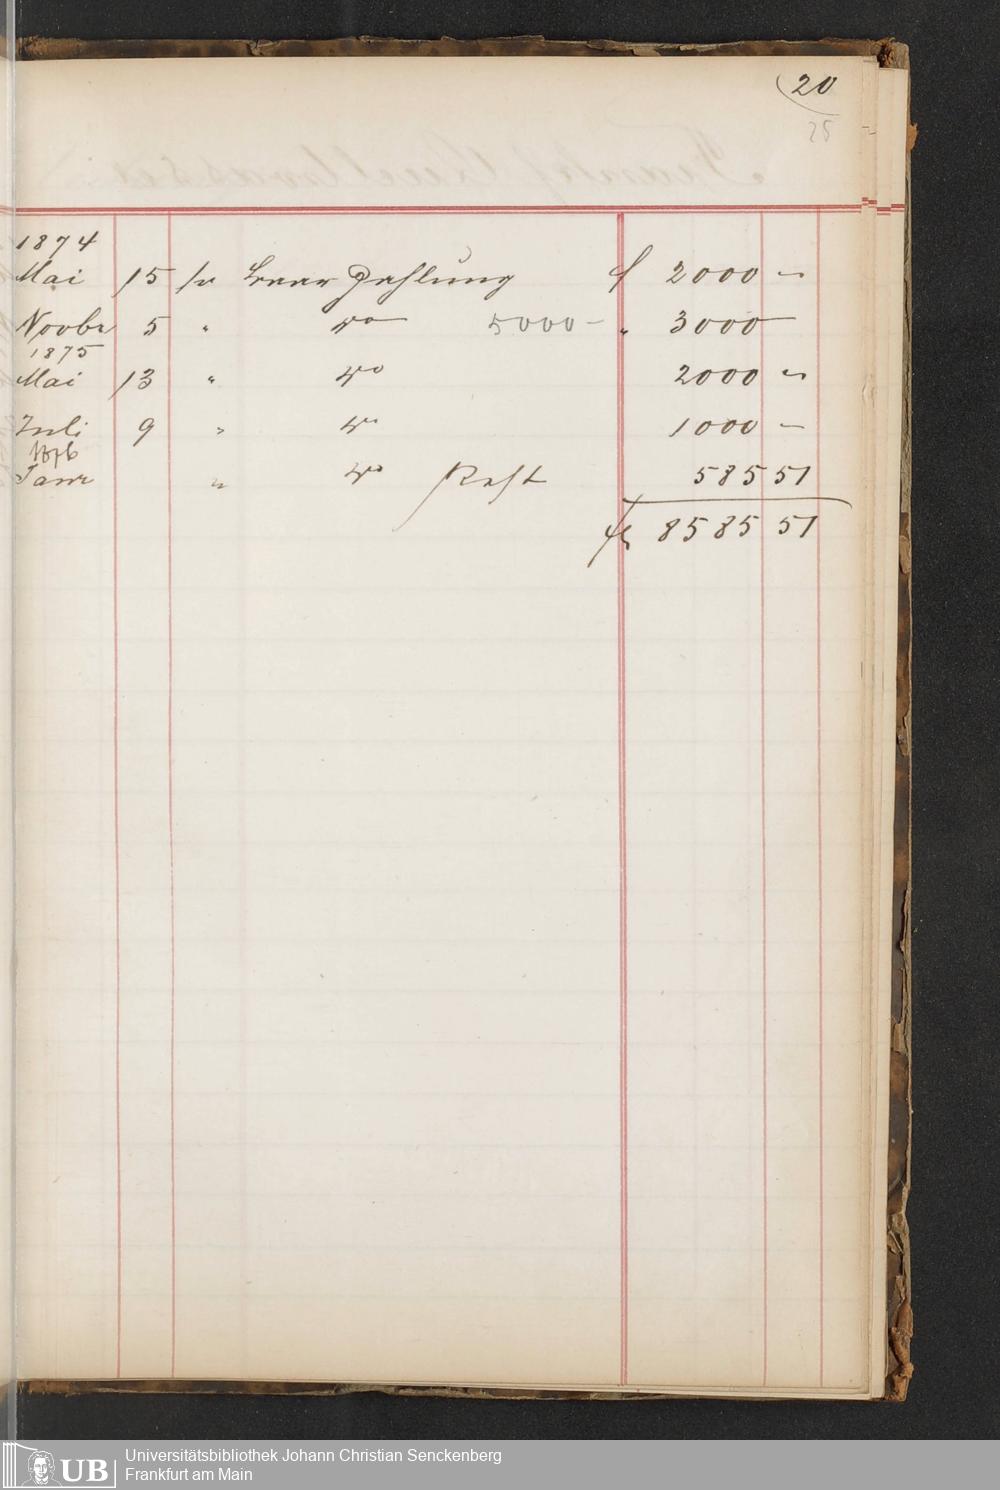 20
25
1874
Mai 15 pr Baar Zahlung f 2000 –
Novbr 5 " do 5000 – " 3000 –
1875
Mai 13 " do 2000 –
Juli 9 " do 1000 –
1876
Janr " do Rest 585 51
fl 8585 51
UB
Universitätsbibliothek Johann Christian Senckenberg
Frankfurt am Main